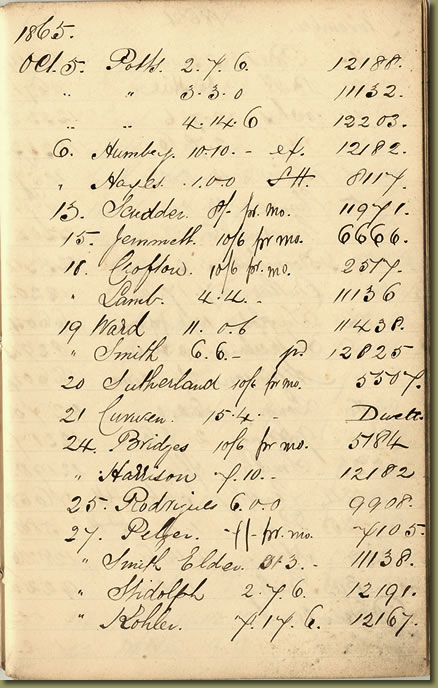 1865.
Oct. 5. Potts. 2.7.6. 12188.
" " 3.3.0 11132.
" " 4.14.6 12203.
6. 10.10.- 12182.
" Hayes. 1.0.0 8117.
13. Scudder. 8/- pr. mo. 11971.
15. Jemmett. 10/6 pr mo. 6666.
18. Crofton. 10/6 pr. mo. 2577.
" Lamb. 4.4.- 11136
19 Ward 11.0.6 11438.
" Smith 6.6.- 12825
20 Sutherland 10/6 pr mo. 5507.
21 Curwen. 15.4.- Duett.
24. Bridges 10/6 pr mo. 5184
" Harrison 7.10.- 12182
25. Rodrigues 6.0.0 9908.
27. pr. mo. 7105.
" Smith Elder 11138.
" 2.7.6. 12191.
" Kohler. 7.17.6. 12167.